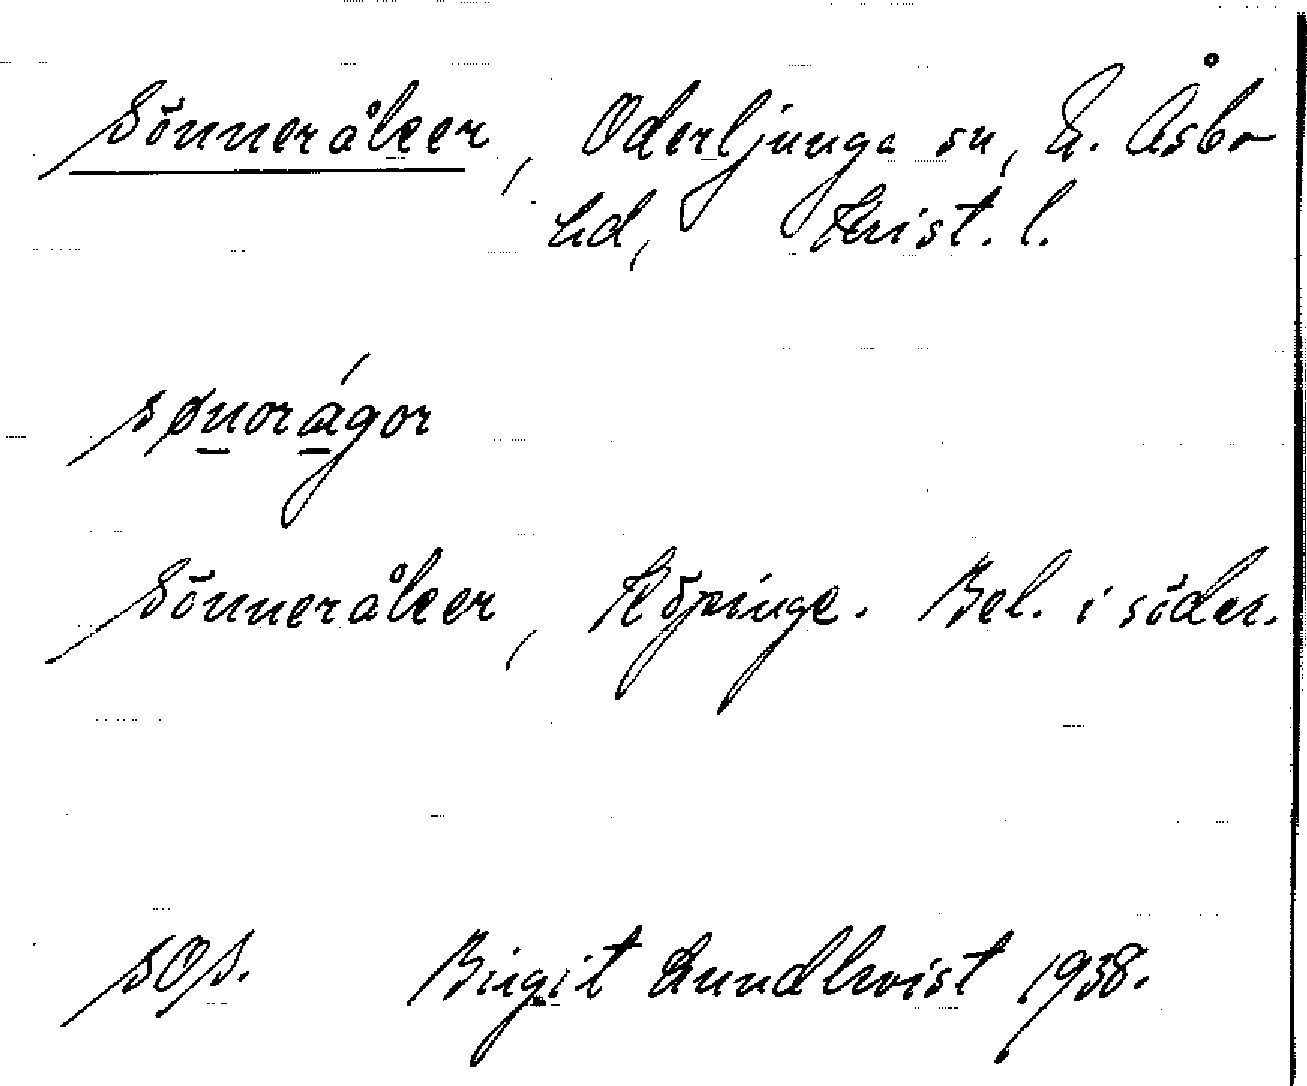 Sönneråker, Oderljunga sn, N. Åsbo
hd, Krist. l.
sønorágor
Sönneråker, Köpinge. Bel. i söder.
Birgit Lundkvist 1938.